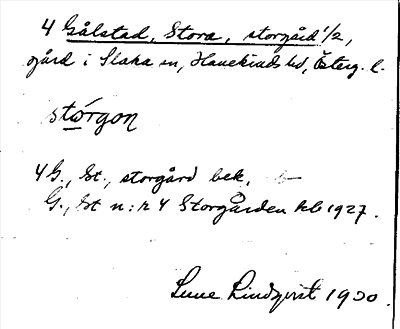 4 Gålstad, Stora, storgård 1/2,
gård i Slaka sn, Hanekinds hd, Österg. l.
stórgon
4 G., St., storgård bek.
G., St n:r 4 Storgården kb 1927.
Sune Lindqvist 1930.